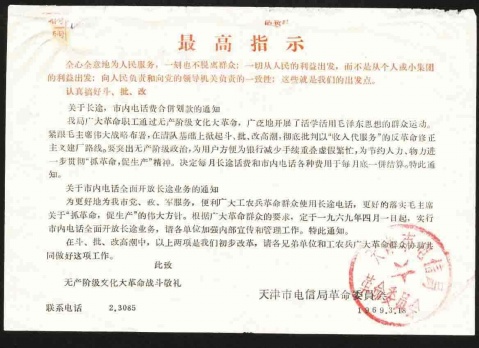 最高指示
全心全意地为人民服务，一刻也不脱离群众；一切从人民的利益出发，而不是从个人或小集团
的利益出发；向人民负责和向党的领导机关负责的一致性；这些就是我们的出发点。
认真搞好斗、批、改
关于长途，市内电话费合併划款的通知
我局广大革命职工通过无产阶级文化大革命，广泛地开展了活学活用毛泽东思想的群众运动。
紧跟毛主席伟大战略布署，在清队基础上掀起斗、批、改高潮，彻底批判以“收入代服务”的反革命修正
主义建厂路线。要突出无产阶级政治，为用户方便为银行减少手续重叠虚假繁忙，为节约人力、物力进
一步贯彻“抓革命，促生产”精神。决定每月长途话费和市内电话各种费用于每月底一併结算。特此通
知。
关于市内电话全面开放长途业务的通知
为更好地为我市党、政、军服务，便利广大工农兵革命群众使用长途电话，更好的落实毛主席
关于“抓革命，促生产”的伟大方针。根据广大革命群众的要求，定于一九六九年四月一日起，实行
市内电话全面开放长途业务，请各单位加强内部宣传和管理工作。特此通知。
在斗、批、改高潮中，以上两项是我们初步改革，请各兄弟单位和工农兵广大革命群众协助共
同做好这项工作。
此致
无产阶级文化大革命战斗敬礼
天津市电信局革命委员会
联系电话 2,3085 1969,3,18
天津市电信局
革命委员会